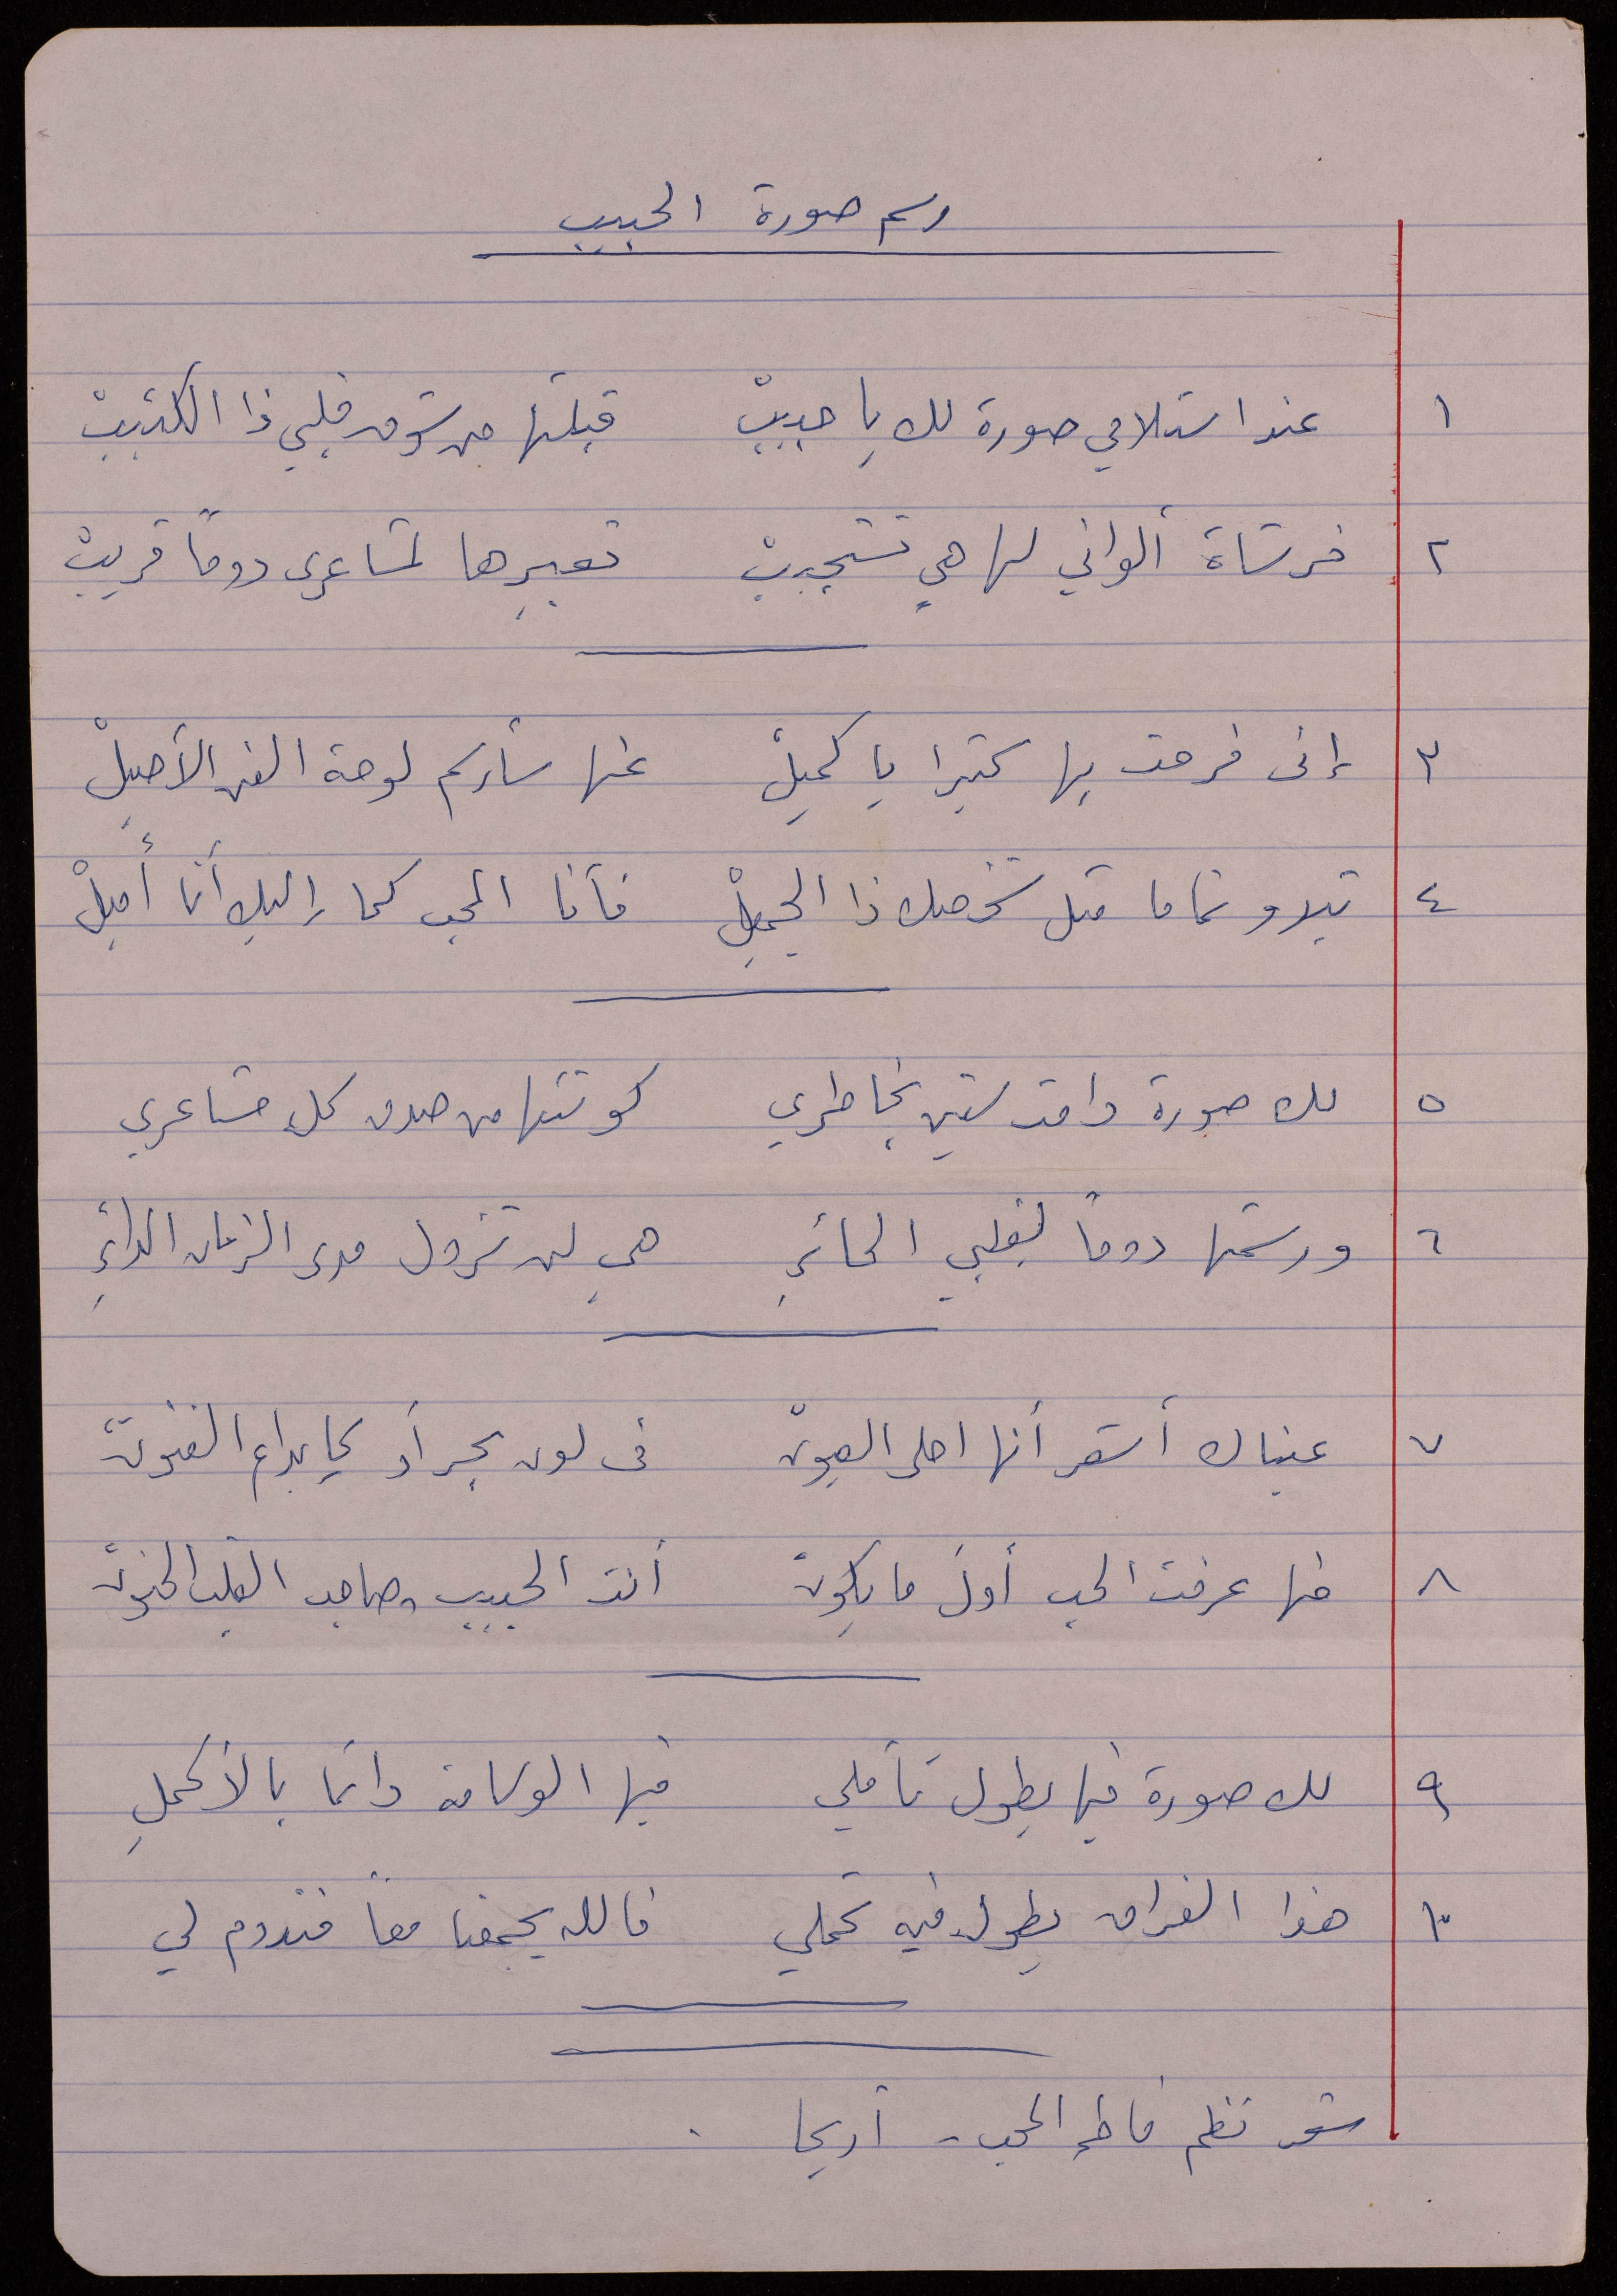 رسم صورة الحبيب
١ عند استلامي صورة لك يا حبيبْ قبلتها من شوق قلبي ذا الكئيبْ
٢ فرشاة ألواني لها هي تستجيبْ تعبيرها لمشاعري دوماً قريبْ
٣ إني فرحت بها كثيرا يا كميلْ عنها سأرسم لوحة الفن الأصيلْ
٤ تبدو تماما مثل شخصك ذا الجميلْ فأنا المحب كما إليك أنا أميلْ
٥ لك صورة دامت سنين بخاطري كونتها من صدق كل مشاعري
٦ ورسمتها دوماً لقلبي الحائرِ هي لن تزول مدى الزمان الدائرِ
٧ عيناك أشعر أنها احلى العيونْ في لون بحر أو كإبداع الفنونْ
٨ منها عرفت الحب أولَ ما يكونْ أنت الحبيب وصاحب القلب الحنونْ
٩ لك صورة فيها يطول تأملي فيها الوسامة دائما بالأكملِ
١٠ هذا الفراق يطول فيه تحملي فالله يجمعنا معاً فتدوم لي
شعر نظم فاطمة المحب - أريحا .